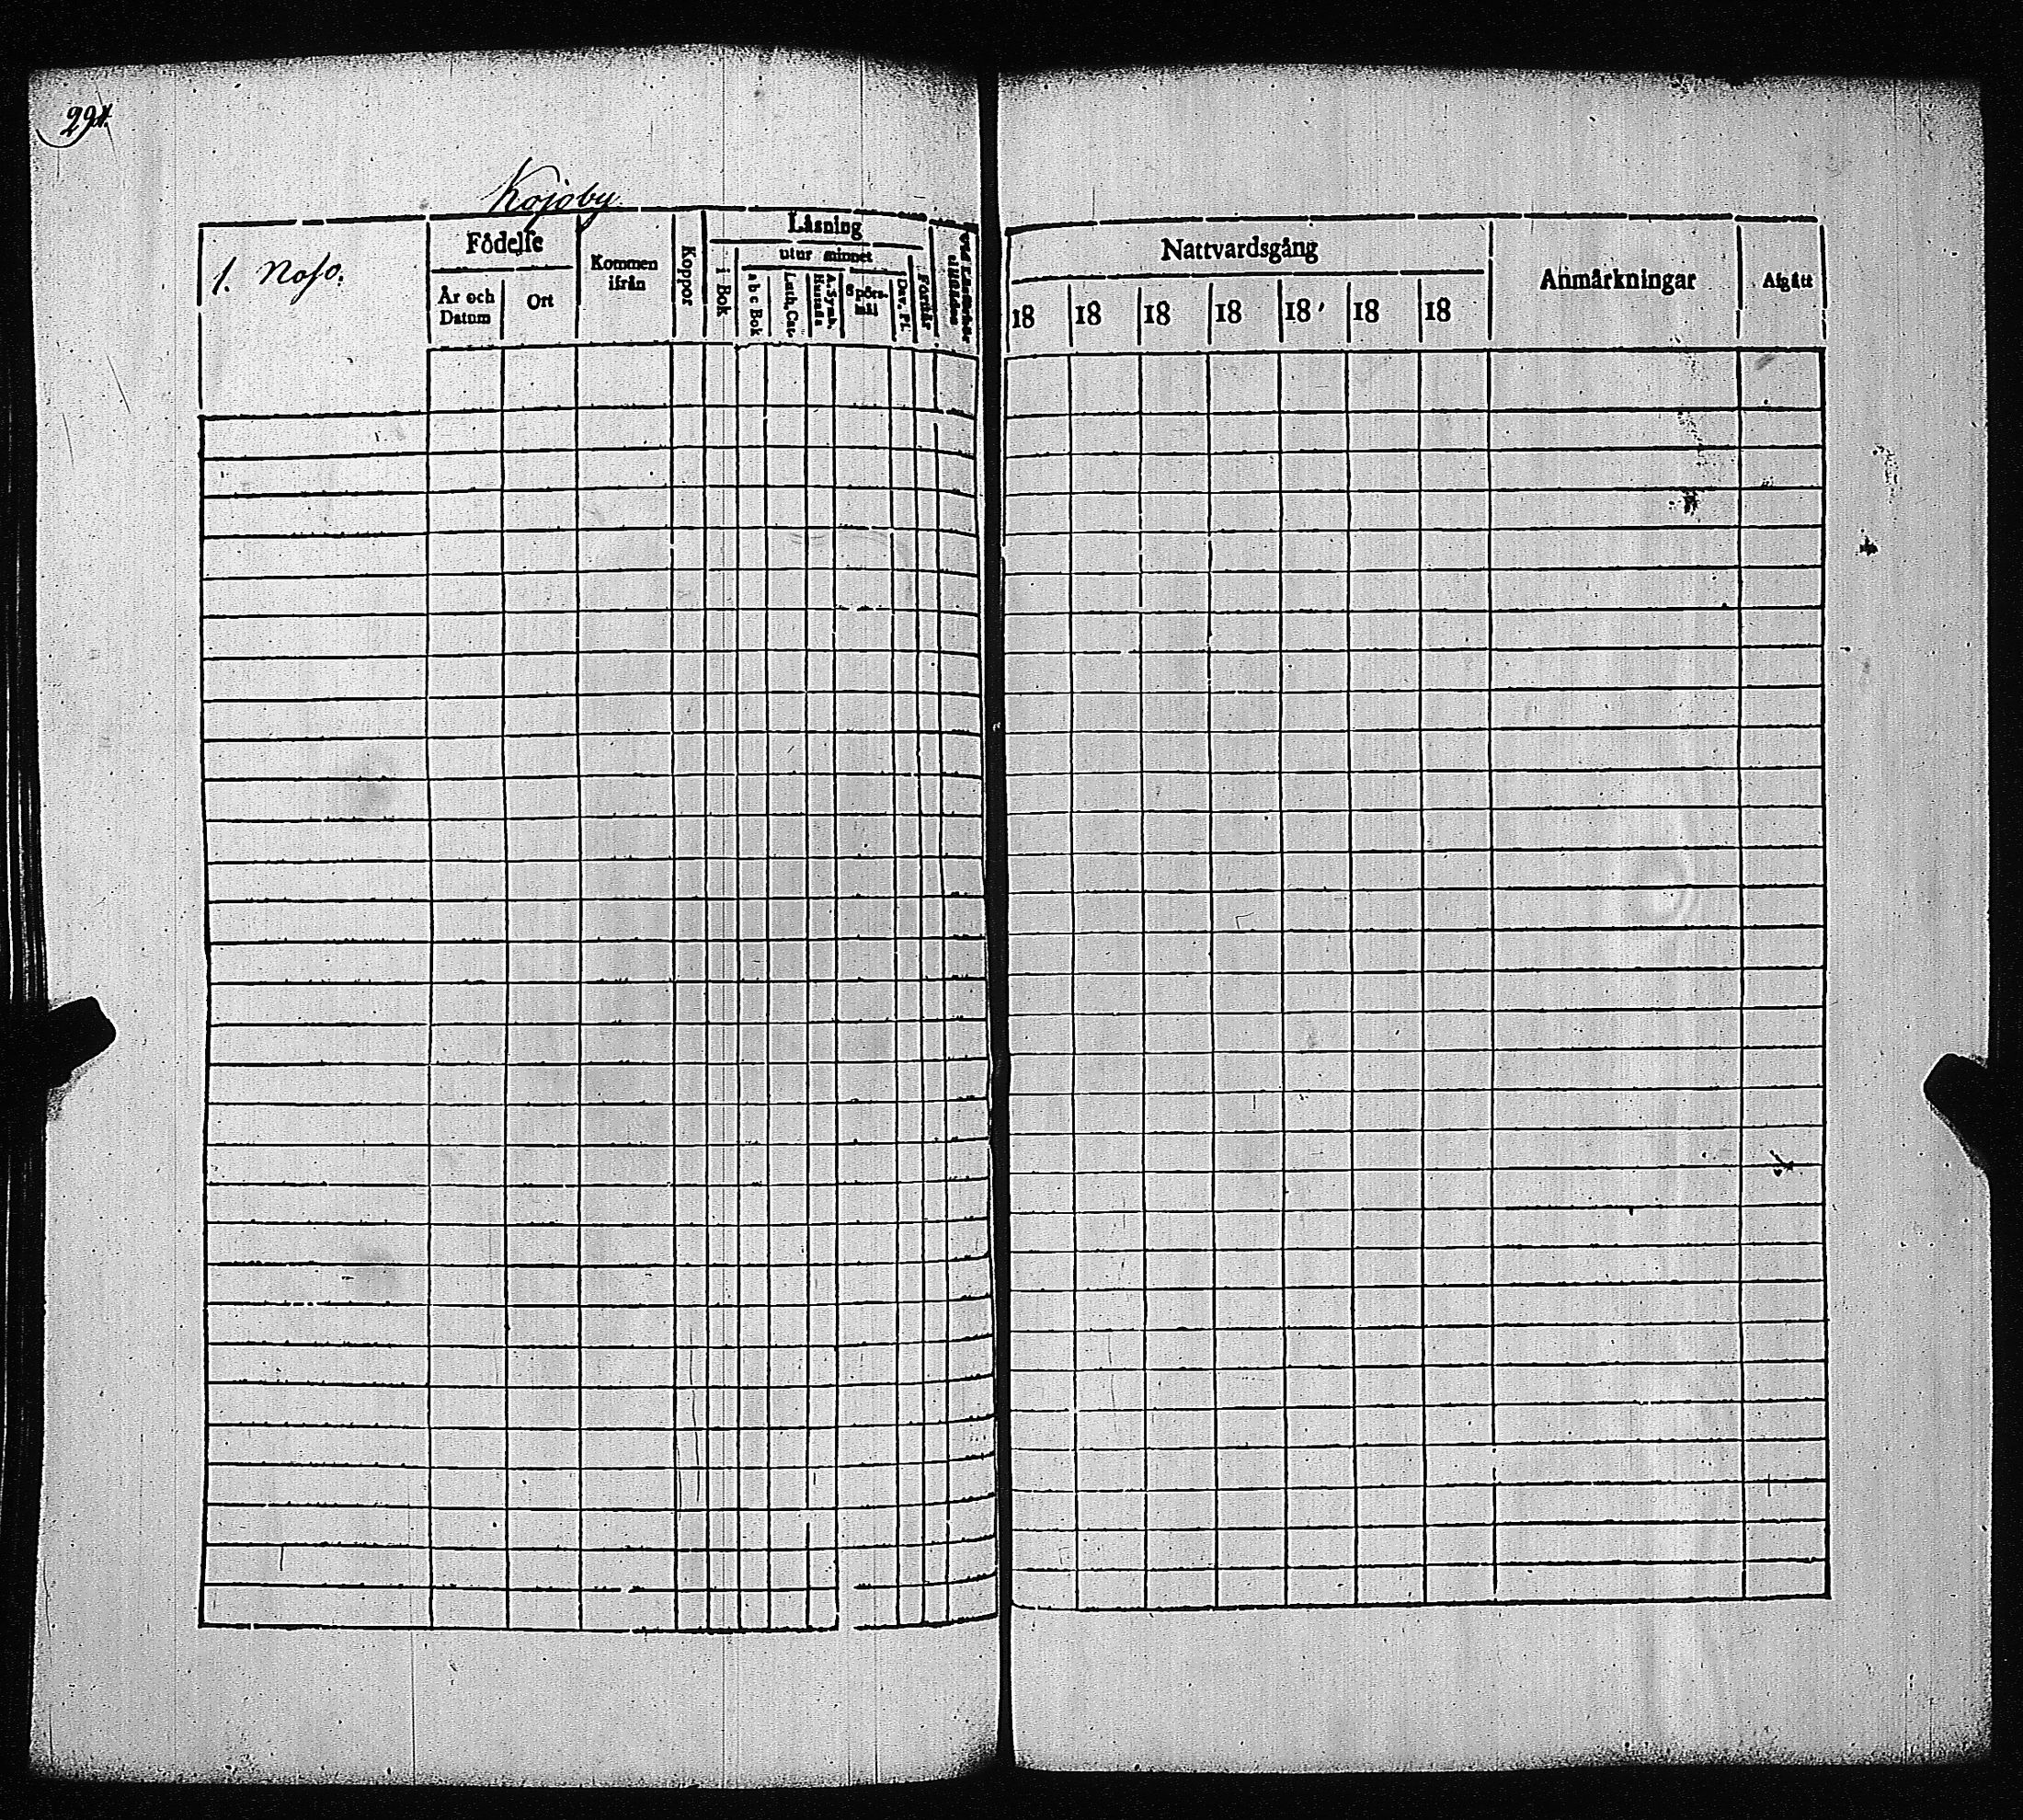 294.
Kojoby
1. Noso.
Födelse
År och Datum
Ort
Kommen ifrån
Koppor
Läsning
i Bok
utur minnet
a b c Bok
Luth. Cat.
A. Symb. Hustafla
Spörsmål
Dav. Ps.
Förstår
Nattvardsgång
18 18 18 18 18 18 18
Anmärkningar
Afgått